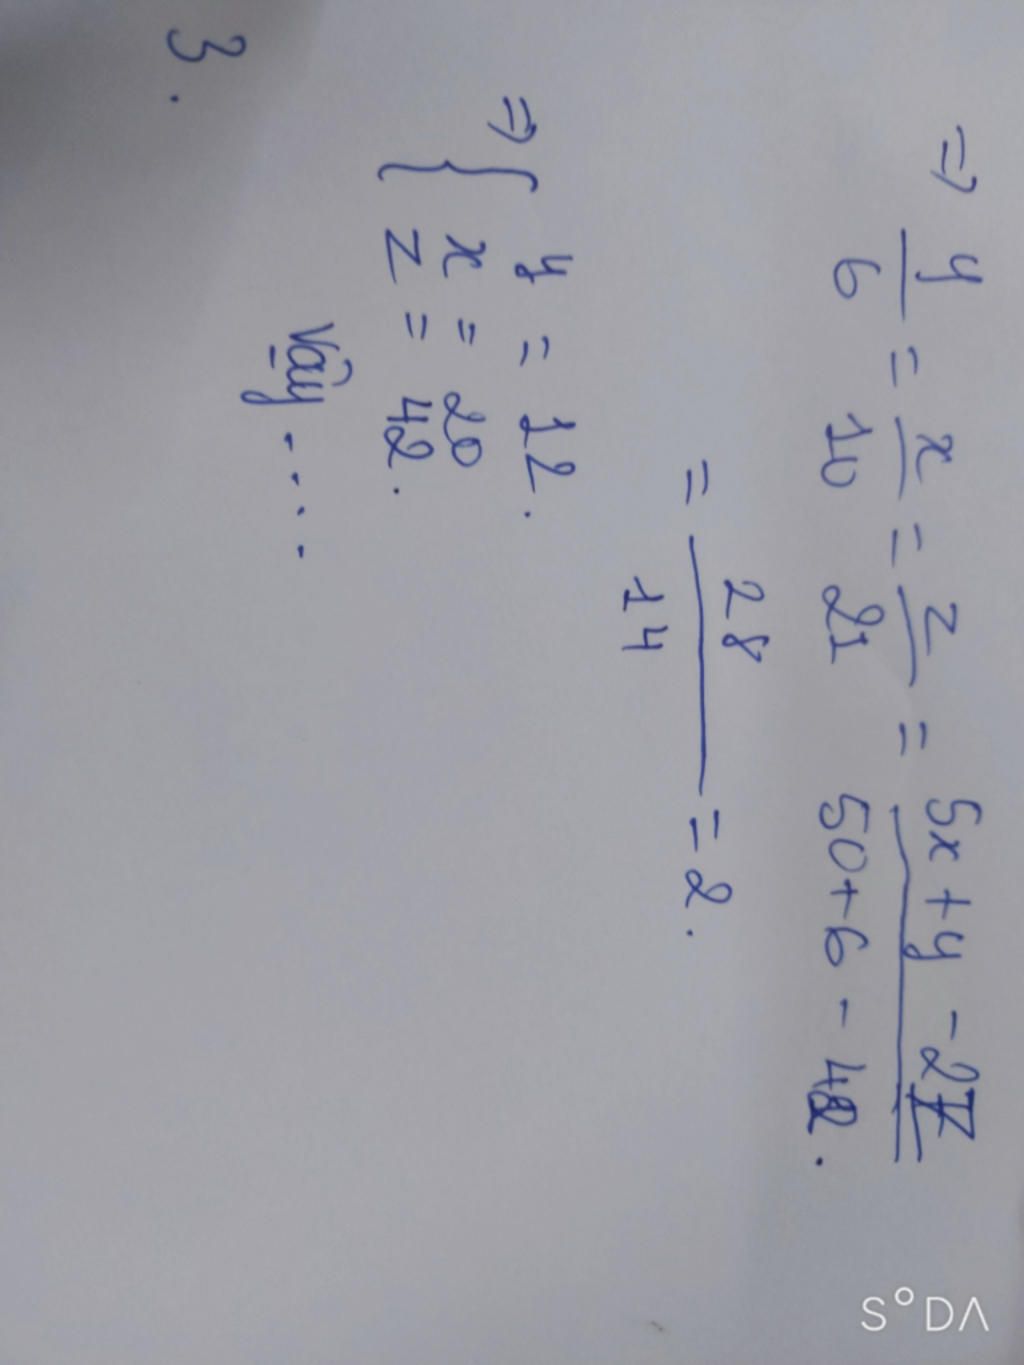 => y/6 = x/10 = z/21 = 5x + y - 2z / 50 + 6 - 42.
= 28/14 = 2.
=> { y = 12.
x = 20
z = 42.
Vậy ....
3.
S°DA